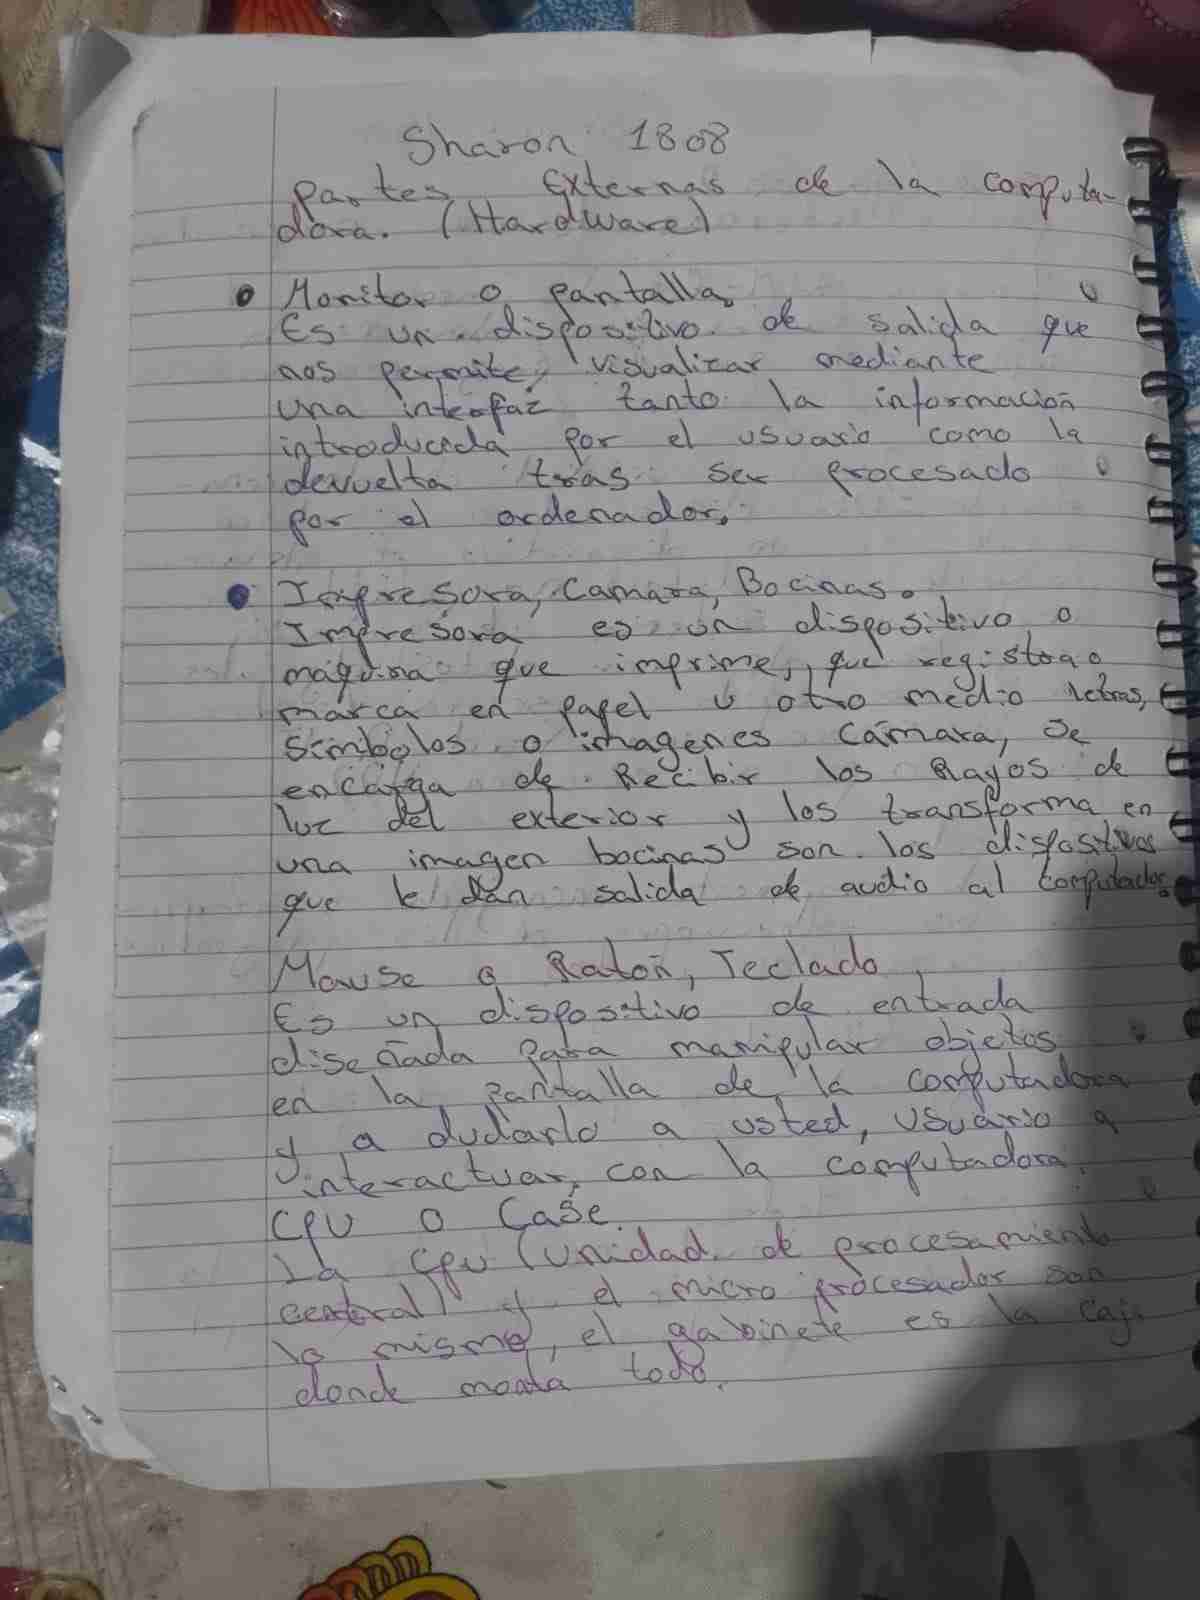 Sharon 1808
Partes Externas de la computa-
dora. (Hardware)
Monitor o pantalla.
Es un dispositivo de salida que
nos permite, visualizar mediante
una interfaz tanto la información
introducida por el usuario como la
devuelta tras ser procesado
por el ordenador.
Impresora, Camara, Bocinas.
Impresora es un dispositivo o
máquina que imprime, que registra o
marca en papel u otro medio letras,
simbolos o imagenes cámara, se
encarga de Recibir los Rayos de
luz del exterior y los transforma en
una imagen bocinas son los dispositivos
que le dan salida de audio al computador.
Mouse o Ratón, Teclado
Es un dispositivo de entrada
diseñada para manipular objetos
en la pantalla de la computadora
y a dudarlo a usted, usuario a
interactuar, con la computadora.
CPU o Case.
La Cpu (unidad de procesamiento
central) y el micro procesador son
lo mismo, el gabinete es la caja
donde monta todo.